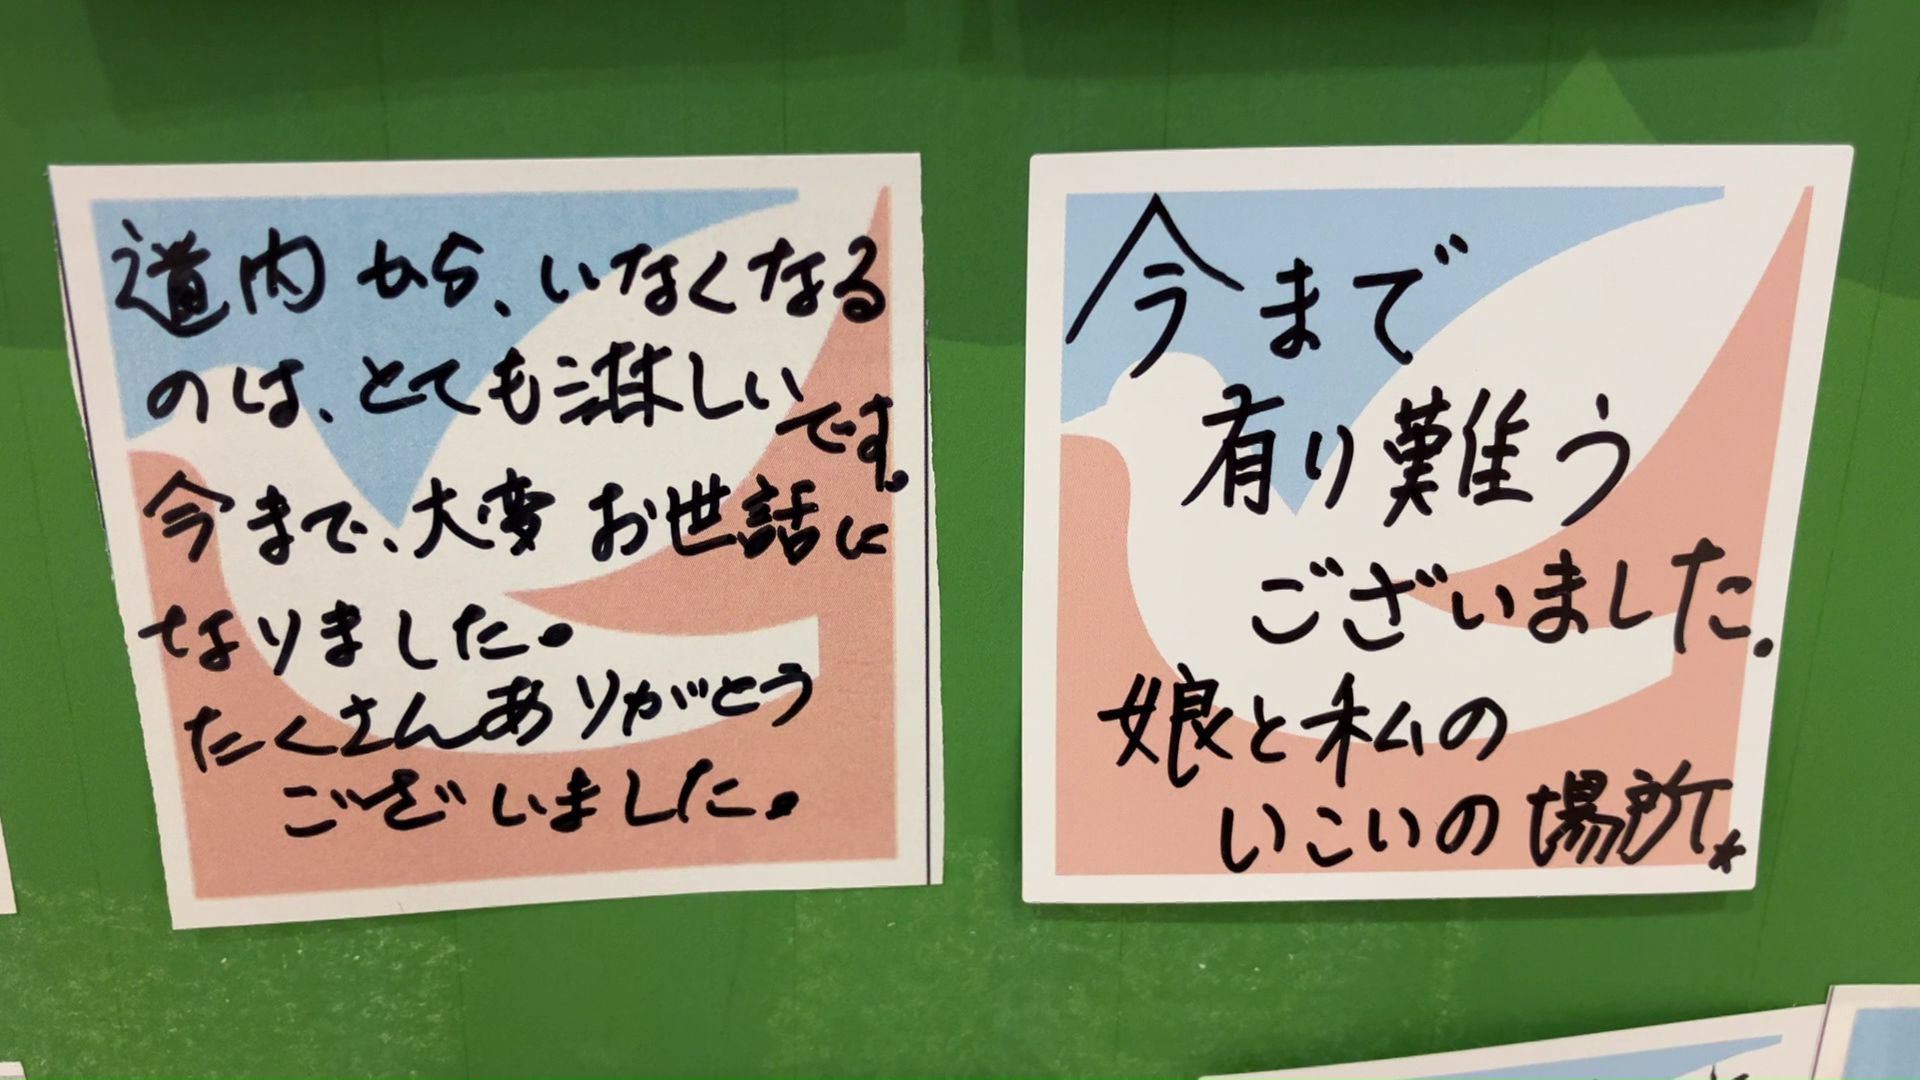 道内から、いなくなる
のは、とても淋しいです。
今まで、大変お世話に
なりました。
たくさんありがとう
ございました。
今まで
有り難う
ございました。
娘と私の
いこいの場所。